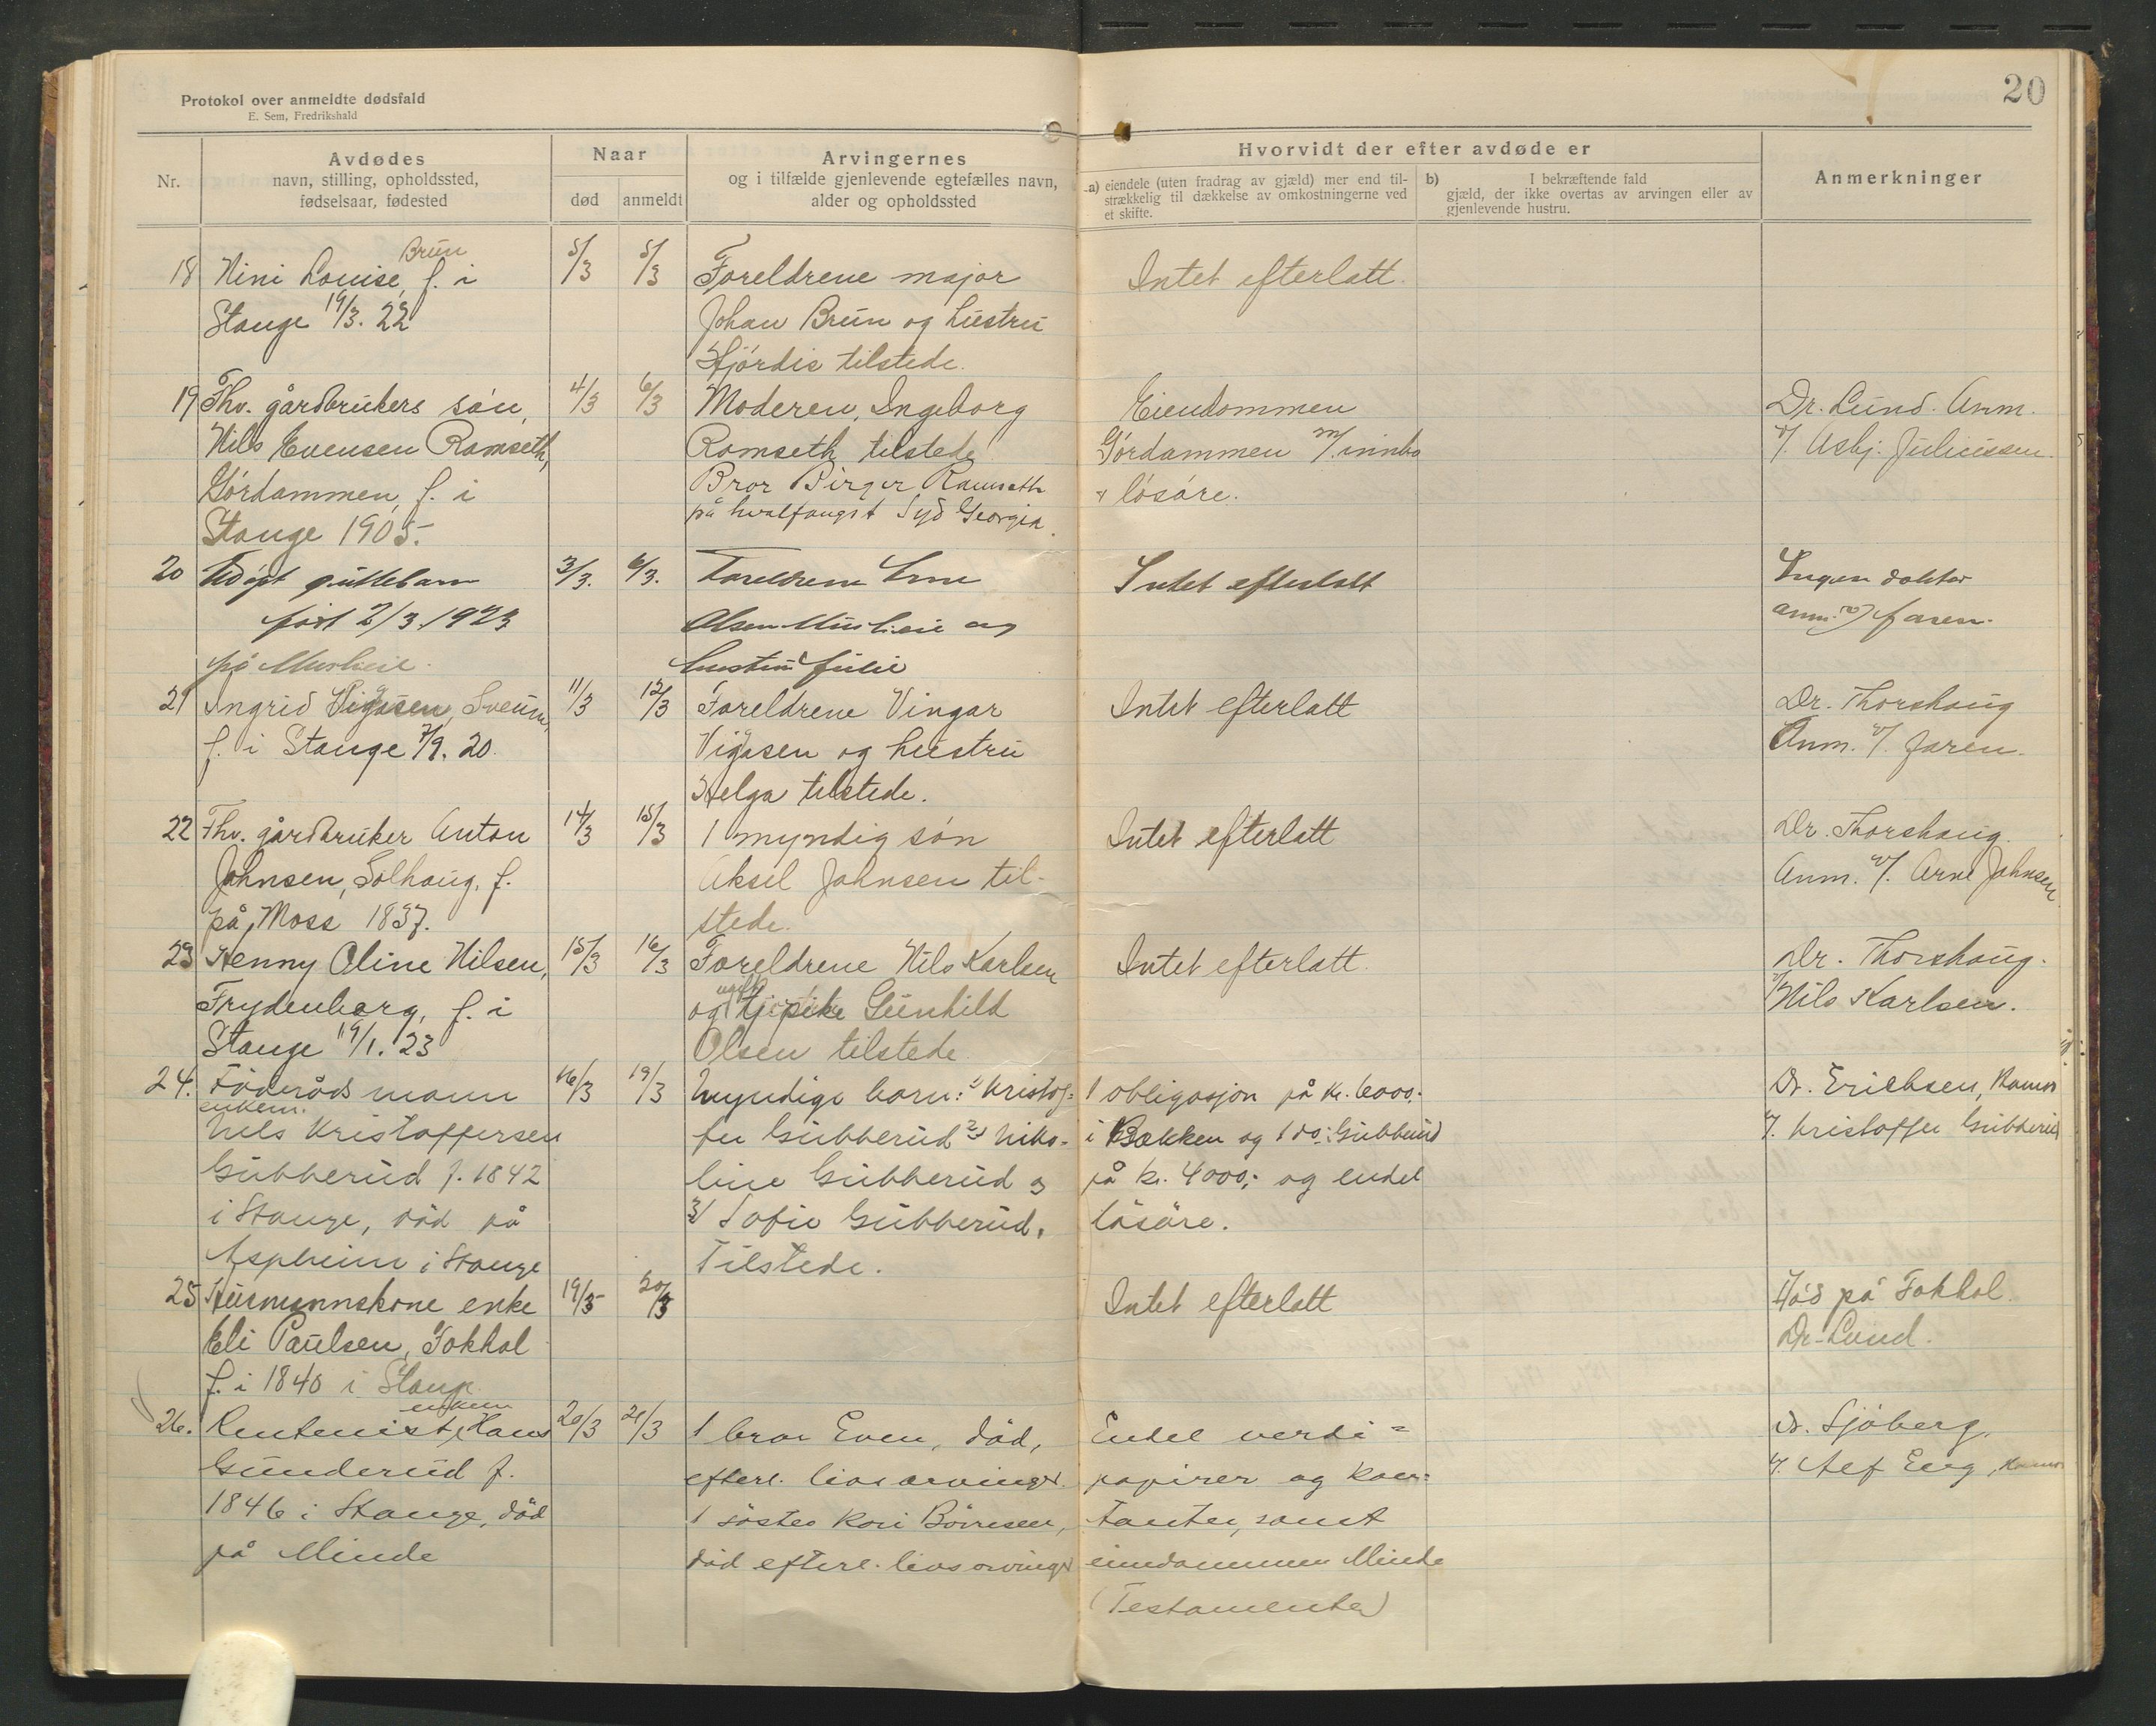 Protokol over anmeldte dødsfald
E. Sem, Fredrikshald
20
Nr.
Avdødes
navn, stilling, opholdssted,
fødselsaar, fødested
Naar
død
anmeldt
Arvingernes
og i tilfælde gjenlevende egtefælles navn,
alder og opholdssted
Hvorvidt der efter avdøde er
a) eiendele (uten fradrag av gjæld) mer end til-
strækkelig til dækkelse av omkostningerne ved
et skifte.
b) I bekræftende fald
gjæld, der ikke overtas av arvingen eller av
gjenlevende hustru.
Anmerkninger
18
Brun
Nini Louise, f. i
Stange 19/3. 22
5/3
5/3
Foreldrene major
Johan Brun og hustru
Hjørdis tilstede.
Intet efterlatt.
19
Fhv. gårdbrukers søn,
Nils Evensen Ramseth,
Gørdammen, f. i
Stange 1905.
4/3
6/3
Moderen, Ingeborg
Ramseth tilstede
Bror Birger Ramseth
på hvalfangst Syd Georgia.
Eiendommen
Gørdammen m/. innbo
& løsøre.
Dr. Lund. Anm.
v/. Asbj. Juliussen.
20
Udøpt guttebarn
født 2/3. 1923
på
3/3.
6/3.
Foreldrene
Olsen og
hustru Julie
Intet efterlatt
Ingen doktor
anm. v/ faren.
21
Ingrid Vigasen, Sveum,
f. i Stange 7/9. 20.
11/3
12/3
Foreldrene Vingar
Vigasen og hustru
Helga tilstede.
Intet efterlatt
Dr. Thorshaug
Anm. v/. faren.
22
Fhv. gårdbruker Anton
Johnsen, Solhaug, f.
på Moss 1837.
14/3
15/3
1 myndig søn
Aksel Johnsen til-
stede.
Intet efterlatt
Dr. Thorshaug.
Anm. v/. Arne Johnsen
23
Henny Oline Nilsen,
Frydenberg, f. i
Stange 19/1. 23
15/3
16/3
Foreldrene Nils Karlsen
ugift
og tj. pike Gunhild
Olsen tilstede.
Intet efterlatt.
Dr. Thorshaug.
v/ Nils Karlsen.
24.
Föderåds mann
enkem.
Nils Kristoffersen
Gubberud f. 1842
i Stange, död på
Aspheim i Stange
16/3
19/3
Myndige barn: 1) Kristof-
fer Gubberud 2) Niko-
line Gubberud og
3) Sofie Gubberud.
Tilstede.
1 obligasjon på kr. 6000.-
i Bækken og 1 do. i Gubberud
på kr. 4000,- og endel
lösöre.
Dr. Erichsen, Hamar
v. Kristoffer Gubberud
25
Husmannskone enke
Eli Paulsen, Fokhol
f. i 1840 i Stange
19/3
20/3
Intet efterlatt
Død på Fokhol.
Dr. Lund.
26.
enkem
Rentenist, Hans
Gunderud f.
1846 i Stange, död
på Minde
20/3
21/3
1 bror Even, död,
efterl. livsarvinger.
1 söster Kari Börresen,
död efterl. livsarvinger
Endel verdi=
papirer og kon=
tanter, samt
eiendommen Minde
(Testamente)
Dr. Sjöberg,
v. Alf Eeg, Hamar